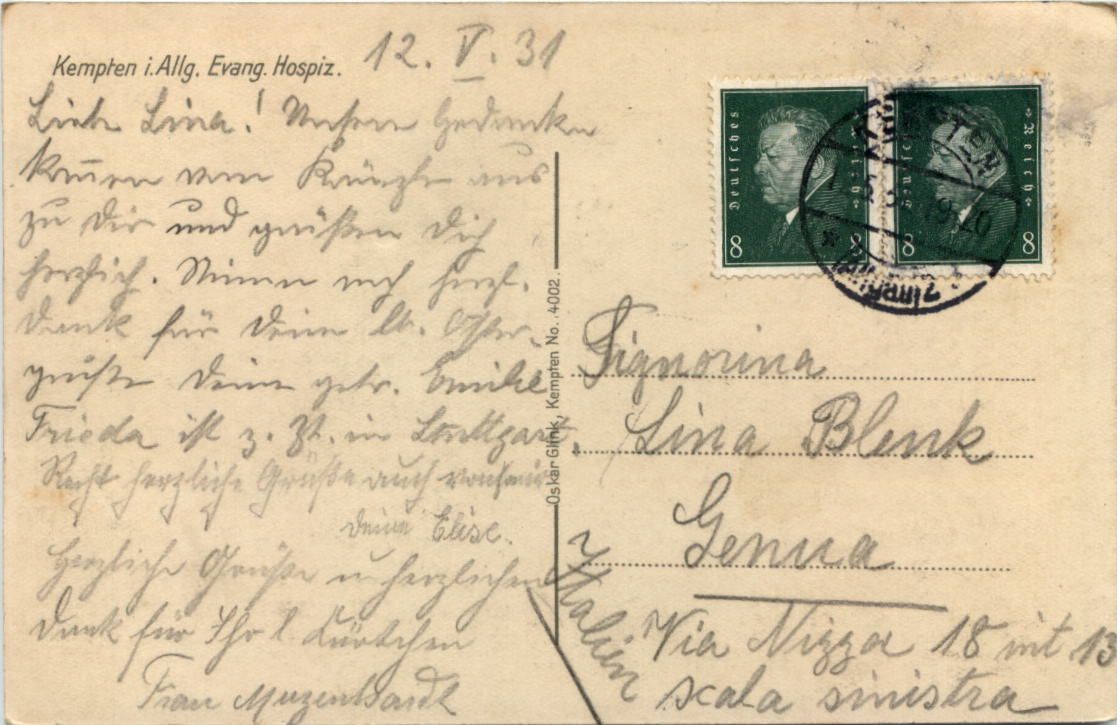 Kempten i. Allg. Evang. Hospiz.
12. V. 31
Liebe Lina! Unsere Gedanken
kom̅en vom Kränzle aus
zu Dir und grüßen Dich
herzlich. Nimm noch herzl.
Dank für Deine lb. Oster-
grüße Deine getr. Emilie
Frieda ist z. Zt. in Stuttgart.
Recht herzliche Grüße auch von mir
Deine Elise.
Herzliche Grüße u herzlichen
Dank für Ihr l. Kärtchen
Frau
Oskar Glink, Kempten No. 4002.
Deutsches Reich
8 8
Deutsches Reich
8 8
KEMPTEN
Signorina
Lina Blenk
Genua
Italien
Via Nizza 18 int 13
scala sinistra